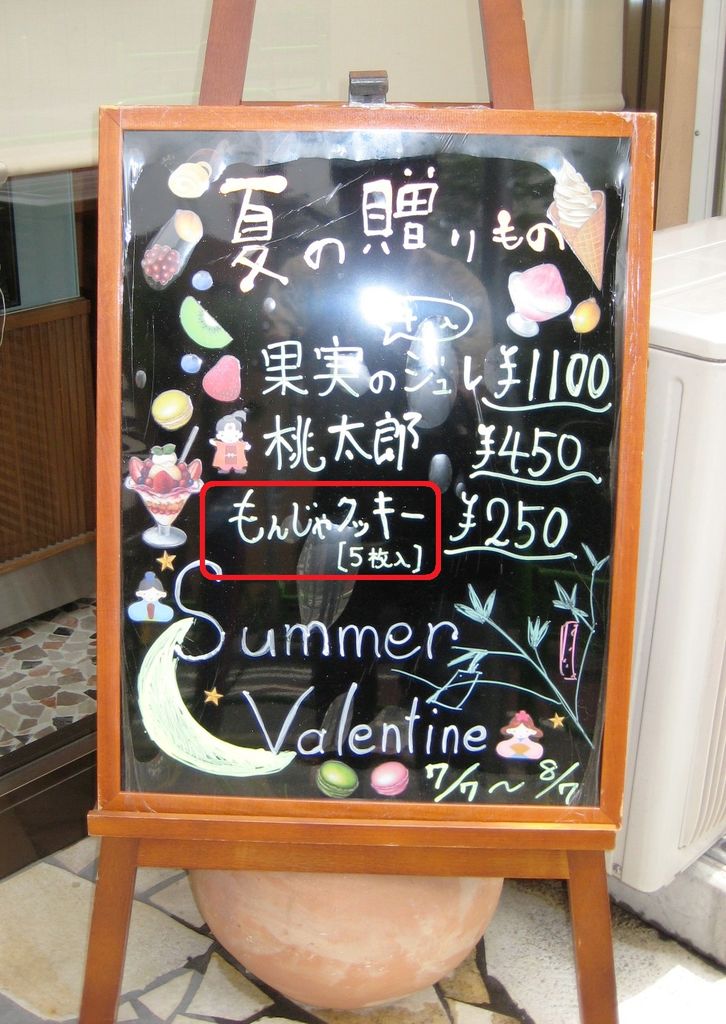 夏の贈りもの
入
果実のジュレ ¥1100
桃太郎 ¥450
もんじゃクッキー ¥250
[5枚入]
Summer
Valentine
7/7〜8/7